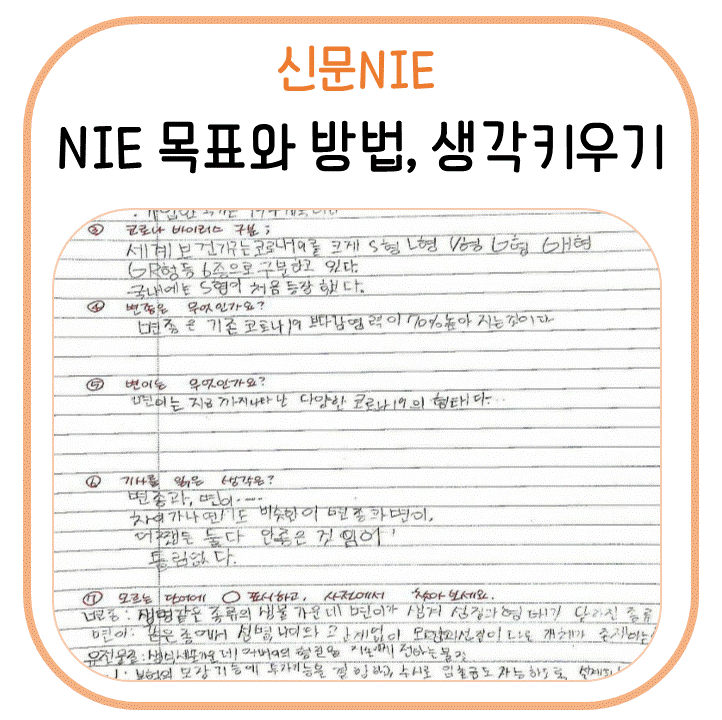 신문NIE
NIE 목표와 방법, 생각키우기
③ 코로나 바이러스 구분;
세계보건기구는 코로나19를 크게 S형 L형 V형 G형 GH형
GR형등 6종으로 구분하고 있다.
국내에는 S형이 처음 등장했다.
④ 변종은 무엇인가요?
변종은 기존 코로나19 보다 감염력이 70%높아 지는것이다
⑤ 변이는 무엇인가요?
변이는 지금까지 나타난 다양한 코로나19의 형태이다...
⑥ 기사를 읽은 생각은?
변종과, 변이....
비슷한이 변종과 변이,
어쨌든 둘다 안좋은 것 임이
틀림없다.
⑦ 모르는 단어에 ○ 표시하고, 사전에서 찾아보세요.
변종: 같은 종류의 생물 가운데 변이가 생겨 성질과 형태가 달라진 종류
변이: 같은 종에서 성별, 나이와 관계없이 모양과 성질이 다른 개체가 존재하는
유전물질: 어버이의 형질을 자손에게 전하는 물질